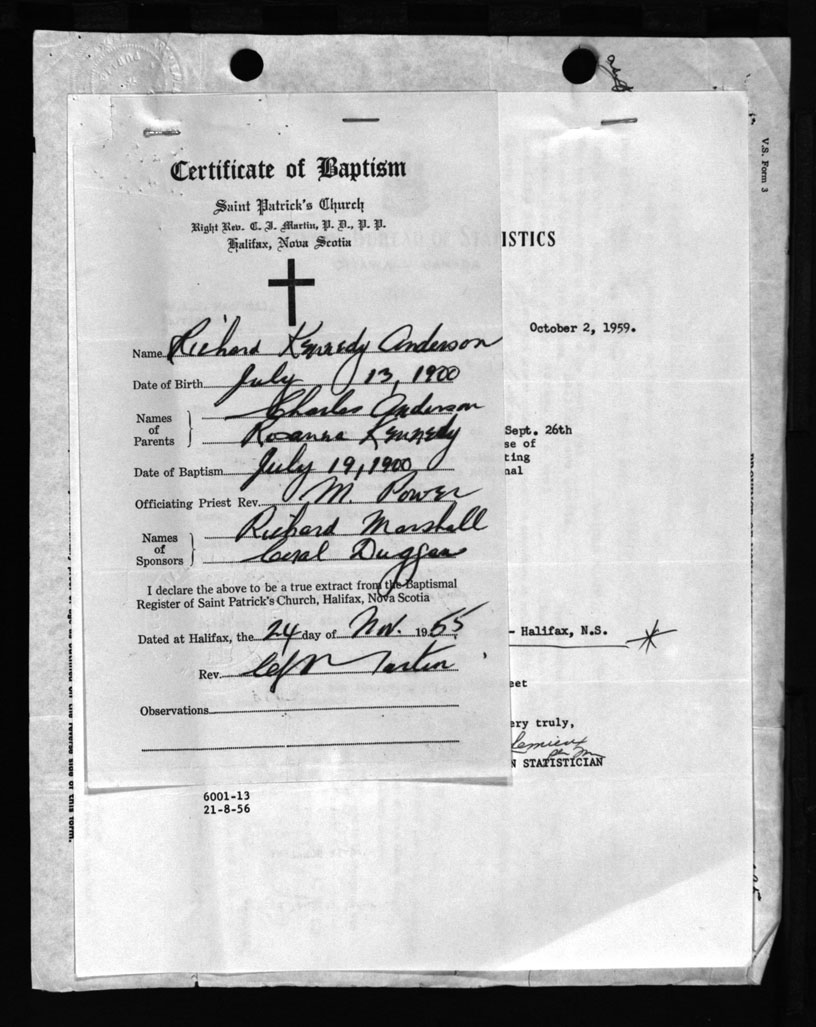 V.S. Form 3
Certificate of Baptism
Saint Patrick's Church
Right Rev. C. J. Martin, P. D., P. P.
Halifax, Nova Scotia
BUREAU OF STATISTICS
October 2, 1959.
Name Richard Kennedy Anderson
Date of Birth July 13, 1900
Names of Parents } Charles Anderson
Rosanna Kennedy
Sept. 26th
se of
ting
nal
Date of Baptism July 19, 1900
Officiating Priest Rev. M. Power
Names of Sponsors } Richard Marshall
Duggan
I declare the above to be a true extract from the Baptismal
Register of Saint Patrick's Church, Halifax, Nova Scotia
Dated at Halifax, the 24 day of Nov. 1955
- Halifax, N.S.
Rev. Martin
eet
Observations
ery truly,
Lemieux
N STATISTICIAN
6001-13
21-8-56
of age as outlined on the reverse side of this form.